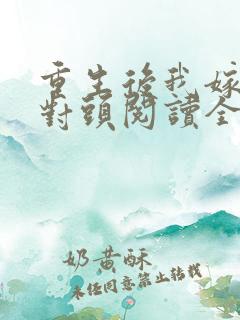 重生後我嫁
對頭閱讀全
奶黃酥
未經同意禁止轉載